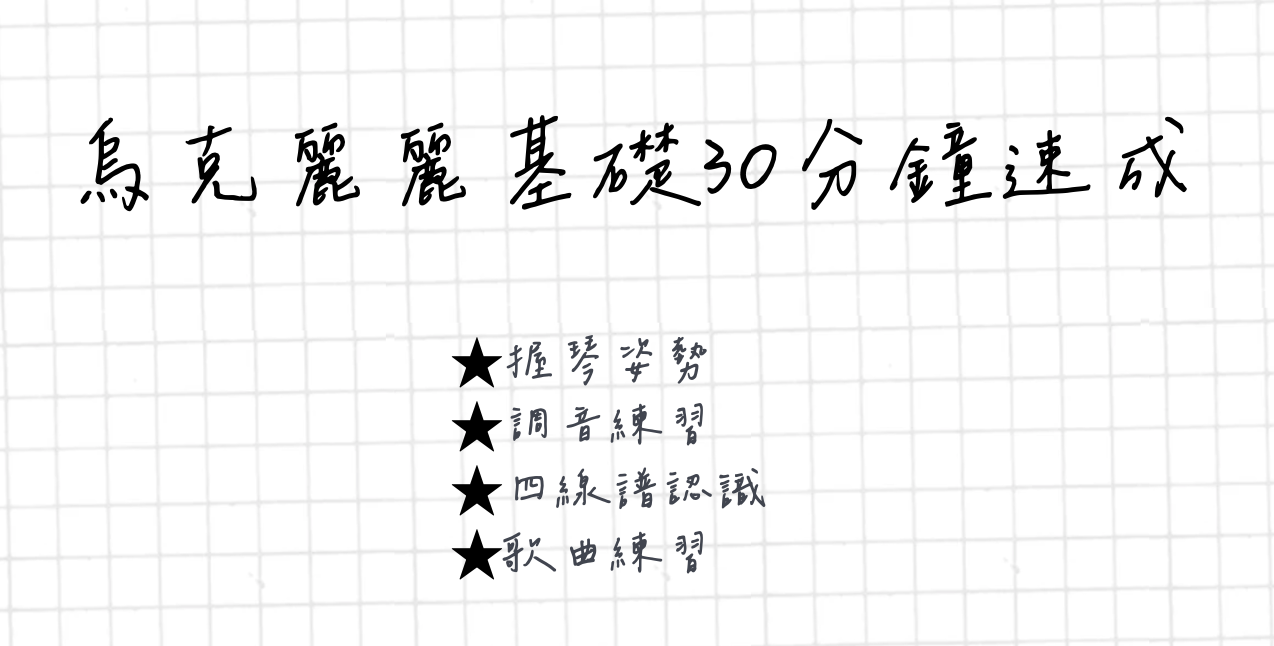 烏克麗麗基礎30分鐘速成
★握琴姿勢
★調音練習
★四線譜認識
★歌曲練習